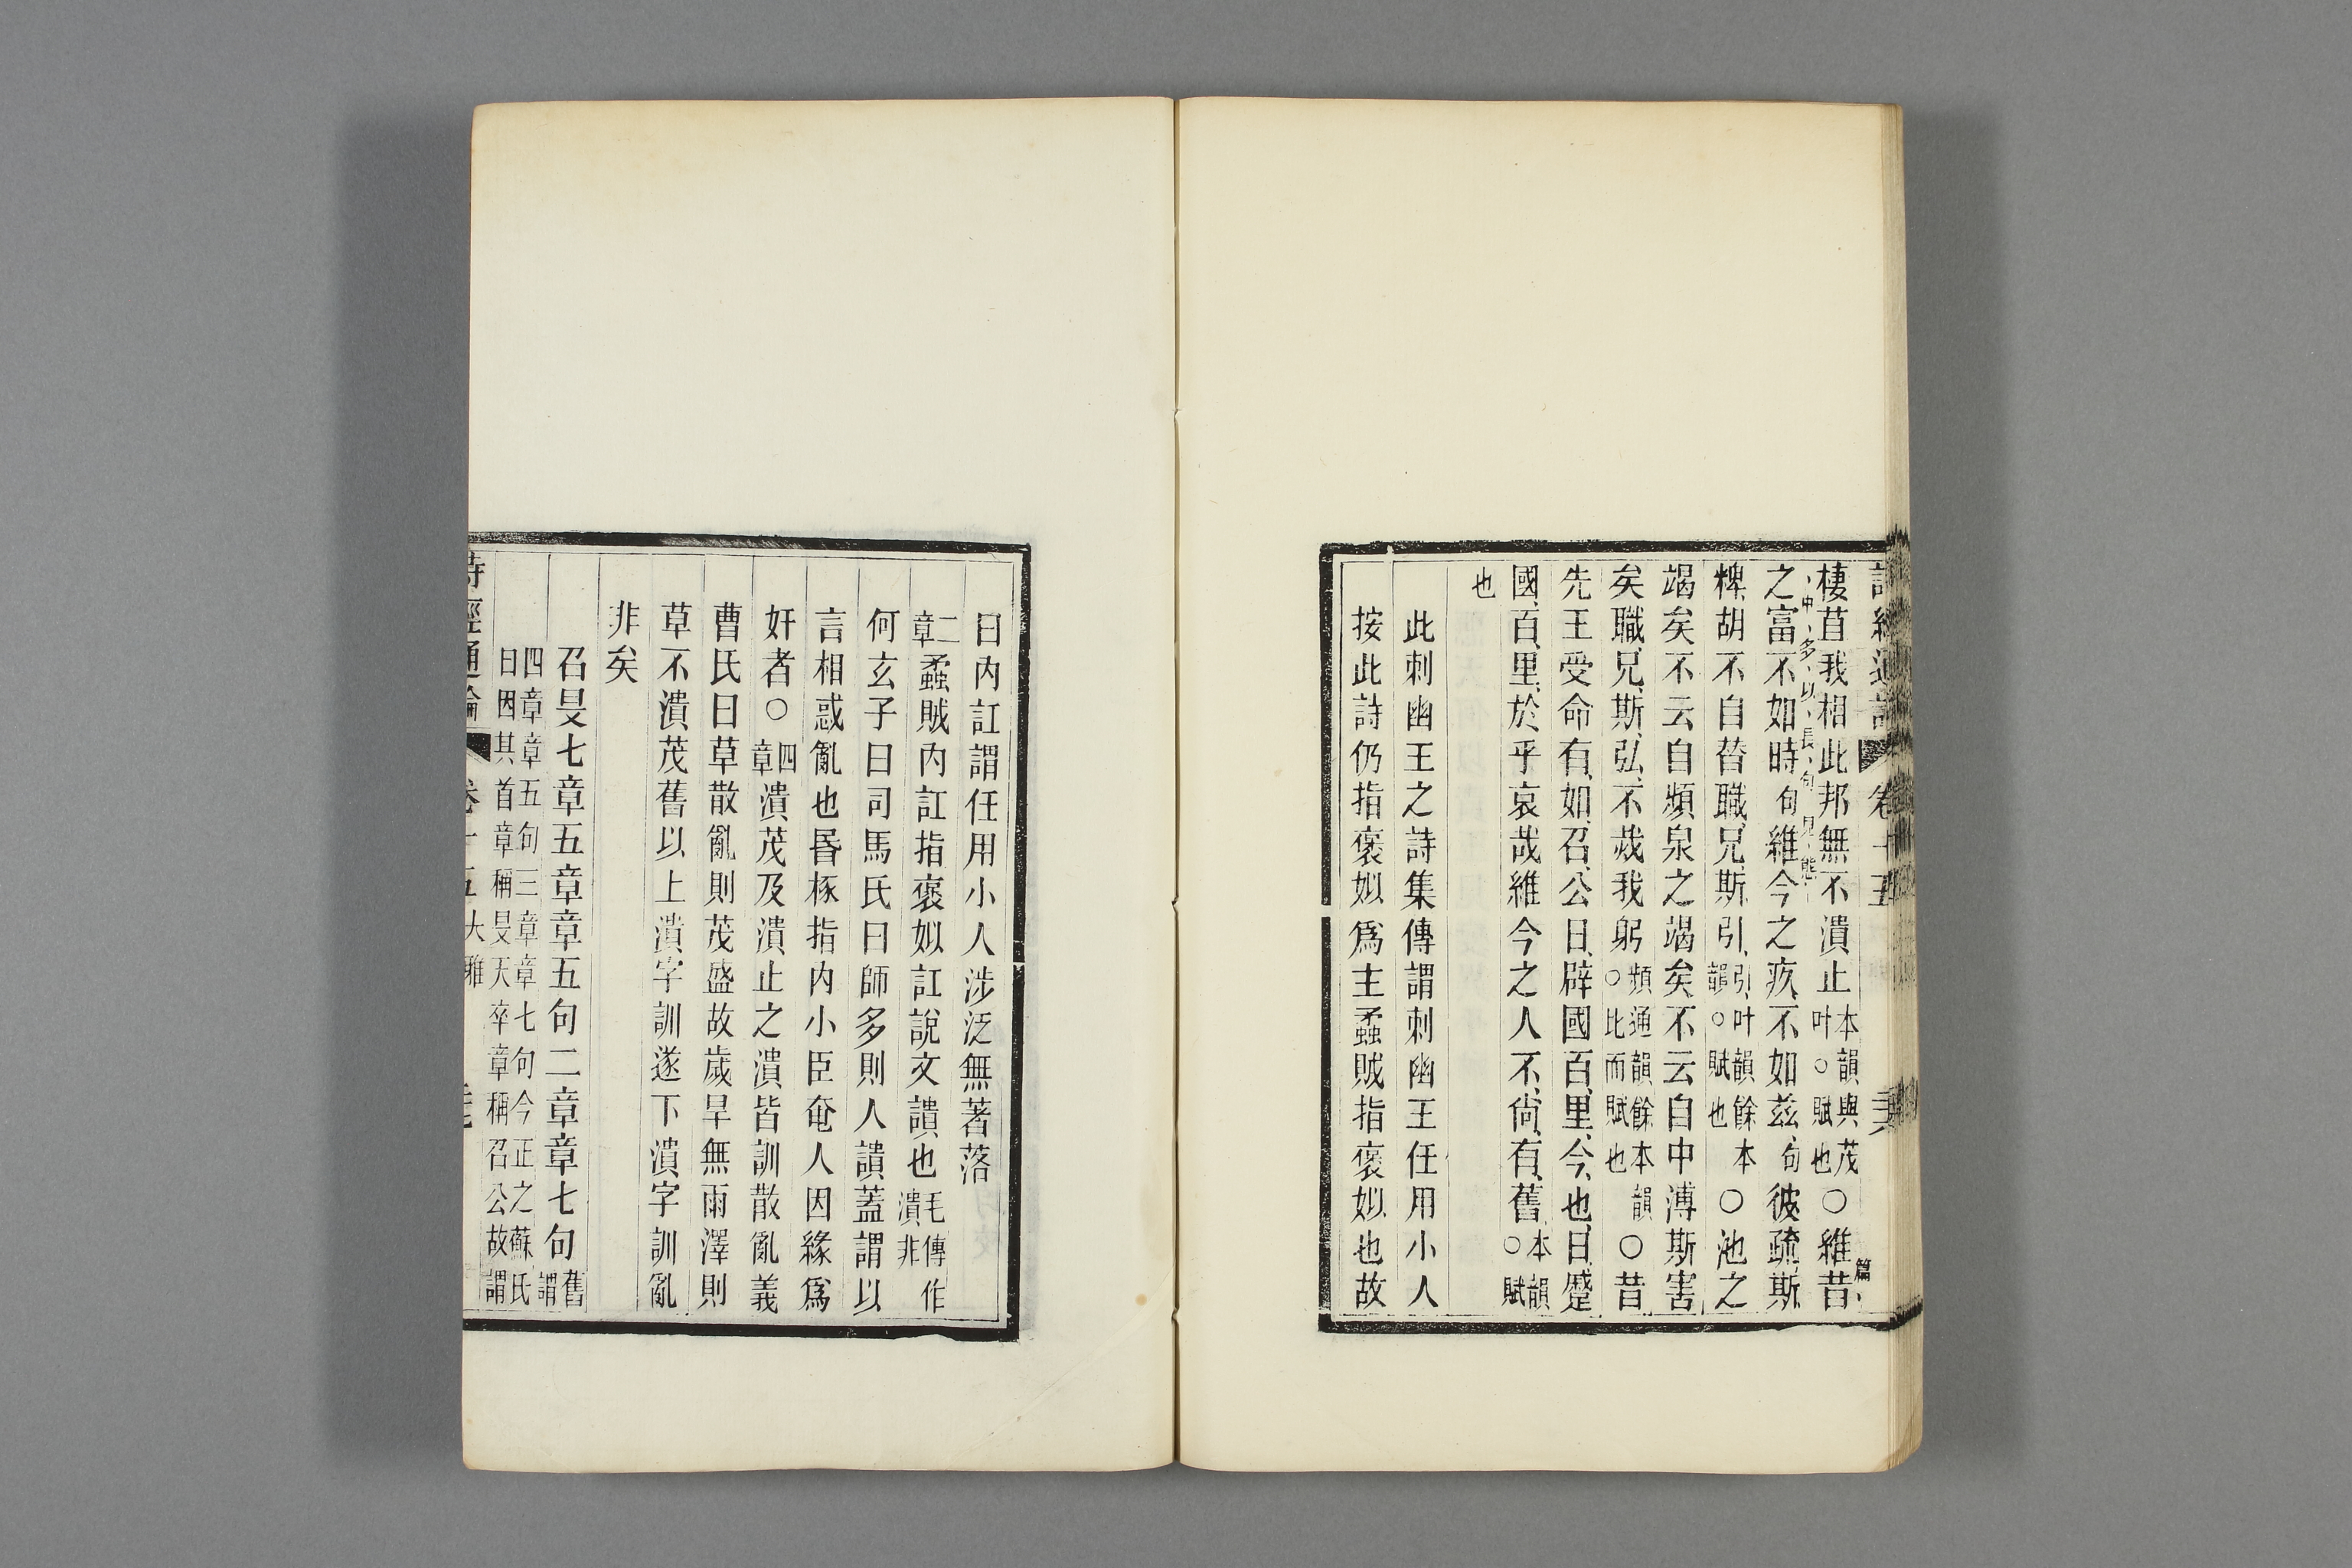 詩經通論 卷十五
棲苴我相此邦無不潰止本韻與茂叶○賦也○維昔
篇中多以長句見態
之富不如時句維今之疚不如茲句彼疏斯
粺胡不自替職兄斯引引叶韻餘本韻○賦也○池之
竭矣不云自頻泉之竭矣不云自中溥斯害
矣職兄斯弘不烖我躬頻通韻餘本韻○比而賦也○昔
先王受命有如召公日辟國百里今也日蹙
國百里於乎哀哉維今之人不尚有舊本韻○賦
也
此刺幽王之詩集傳謂刺幽王任用小人
按此詩仍指褒姒爲主蟊賊指褒姒也故
曰內訌謂任用小人涉泛無著落
二章蟊賊內訌指褒姒訌說文讃也毛傳作潰非
何玄子曰司馬氏曰師多則人讃蓋謂以
言相惑亂也昬椓指內小臣奄人因緣爲
奸者○四章潰茂及潰止之潰皆訓散亂義
曹氏曰草散亂則茂盛故歲旱無雨澤則
草不潰茂舊以上潰字訓遂下潰字訓亂
非矣
召旻七章五章章五句二章章七句舊謂
四章章五句三章章七句今正之蘇氏
曰因其首章稱旻天卒章稱召公故謂
詩經通論 卷十五 大雅